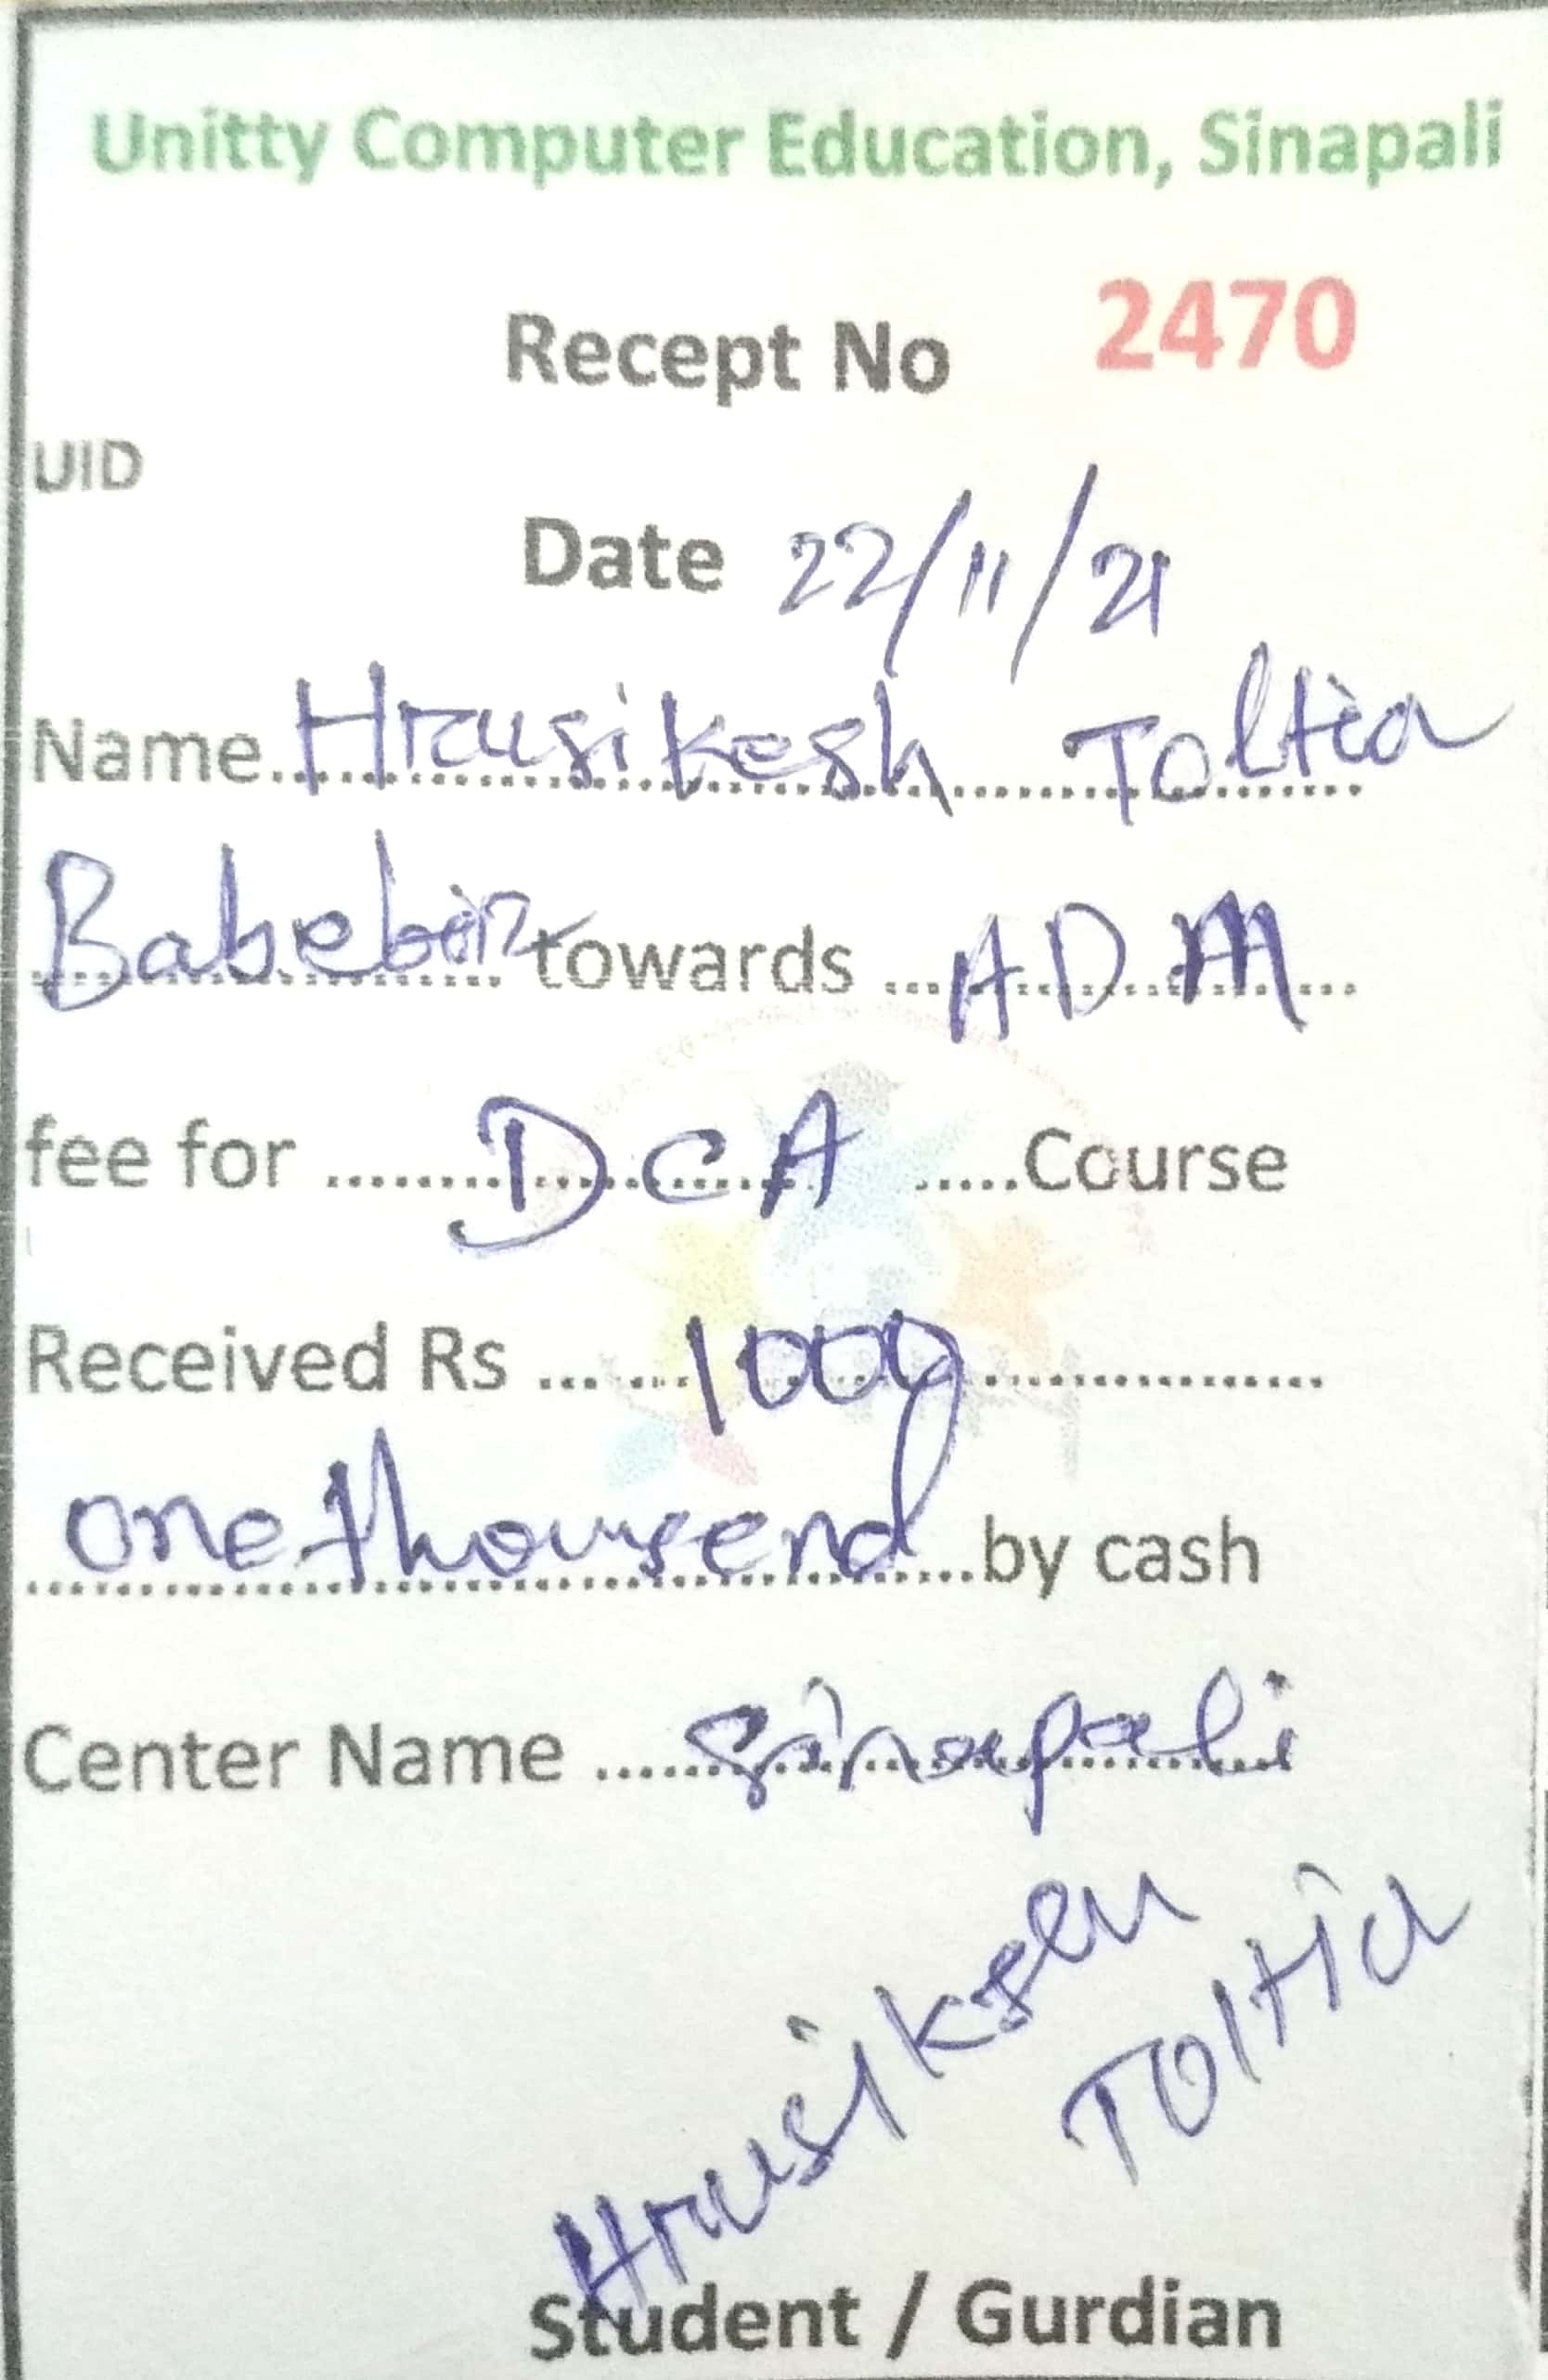 Unitty Computer Education, Sinapali
Recept No 2470
UID
Date 22/11/21
Name Hrusikesh Toltia
towards ADM
fee for DCA Course
Received Rs 1000
one thousend by cash
Center Name Sinapali
Toltia
Student / Gurdian